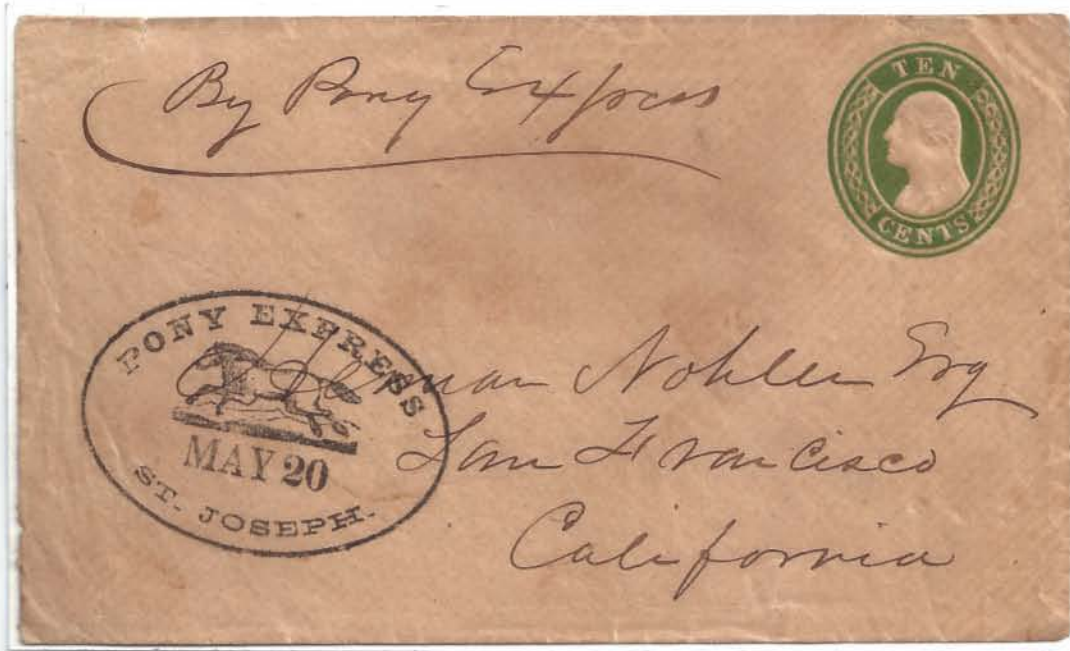 By Pony Express
TEN
CENTS
PONY EXPRESS
MAY 20
ST. JOSEPH.
Herman Nohlen Esq
San Francisco
California